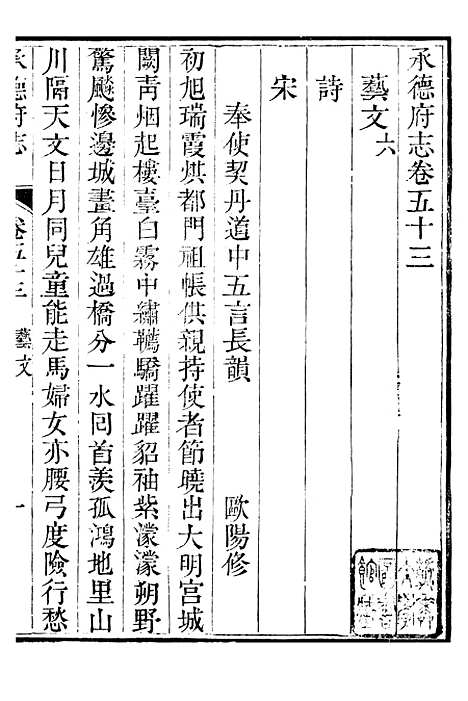 承德府志卷五十三
藝文六
詩
宋
奉使契丹道中五言長韻 歐陽修
初旭瑞霞烘都門祖帳供親持使者節曉出大明宮城
闕靑烟起樓臺白霧中繡韉驕躍躍貂袖紫濛濛朔野
驚飈慘邊城畫角雄過橋分一水囘首羨孤鴻地里山
川隔天文日月同兒童能走馬婦女亦腰弓度險行愁
承德府志 卷五十三 藝文 一